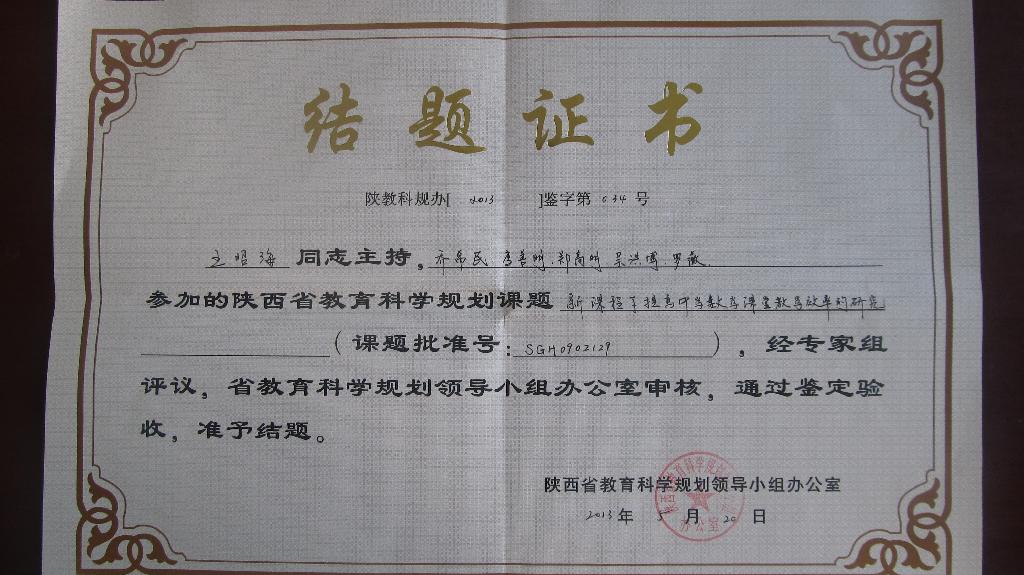 结题证书
陕教科规办[ 2013 ]鉴字第 034 号
王昭海 同志主持, 齐帮民 李善明.郑尚明 吴洪博.罗薇
参加的陕西省教育科学规划课题 新课程下提高中学数学课堂教学效率的研究
(课题批准号:SGH0902129),经专家组
评议,省教育科学规划领导小组办公室审核,通过鉴定验
收,准予结题。
陕西省教育科学规划领导小组办公室
2013年 5 月 20 日
办公室